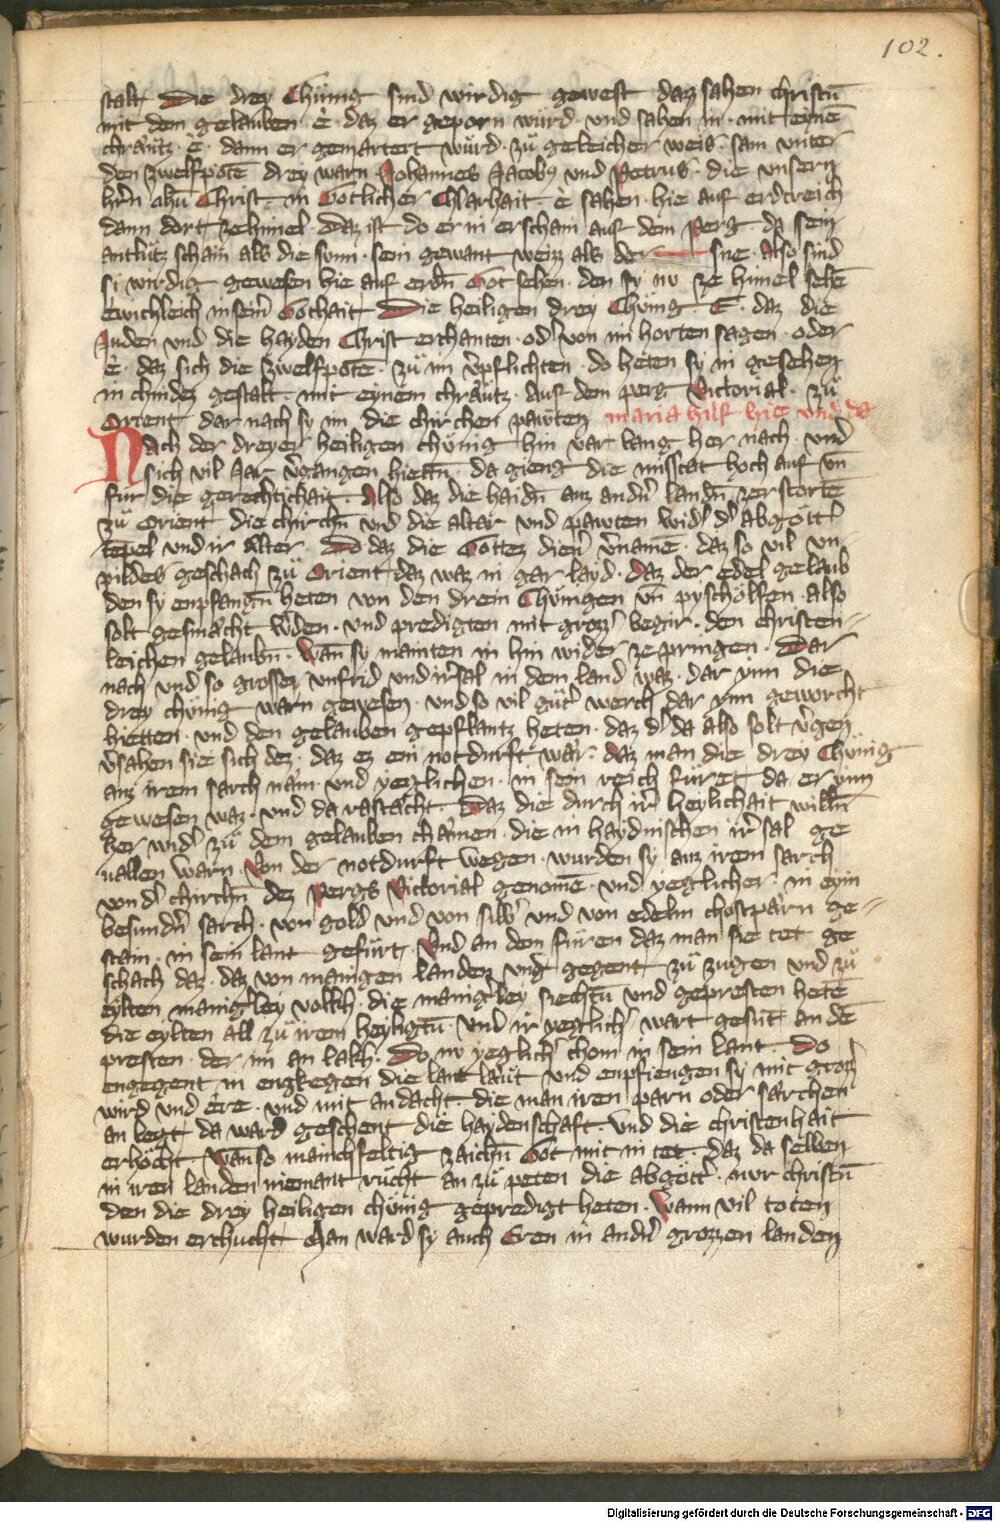 102.
stalt Die drey Chünig sind wirdig gewest daz sahen christū
mit dem gelauben · e · daz er geporn würd · und sahen in · mit eynē
chräutz · e · dann er gemartert würd · zü geleicher weis · sam unter
den zwelfpotē drey warn Johannes Jacobꝰ und Petrus · die unsern
hrn̄ ihū Christ · in Götlicher Chlarhait · e sahen · hie auf erdtreich
dann dort ze himel · Daz ist do er in erschain auf dem Perg · da sein
antlütz schain als die sunn · sein gewant weizz als der sne · Also sind
si wirdig gewesen hie auf erdn̄ Got sehen · den sy nv ze himel sehē
ewichleich in seim̄ Gothait Die heiligen drey Chünig · E · daz die
Juden und die hayden Christ erchanten · odʼ von im horten sagen · oder
e · daz sich die zwelfpotē · zü im vʼpflichten · do heten sy in gesehen
in chindez gestalt · mit eynem chräutz · Auf dem perg Victorial · zü
Orient dar nach sy im die chirchen pawten maria hilf hie und da
Nach der dreyer heiligen chünig hin var lang her nach · und
sich vil Jar vʼgangen hietn̄ · da gieng die missetat hoch auf vn̄
für die gerechtichait · Also daz die haidn̄ auz andʼn landn̄ zerstortē
zü Orient die chirchn̄ und die altar und pawten widʼ dʼ abgött
tēpel und ir alter · Do daz die Gottez dienʼ vʼnamē · daz so vil un-
pildes geschach zü Orient · daz waz in gar layd · daz der edel gelaub
den sy enpfangn̄ heten von den drein Chünigen vn̄ pyschölfen · also
solt gesmächt wʼden · und predigten mit grozzʼ begir · den christen-
leichen gelaubn̄ · wan̄ sy mainten in hin wider ze pringen · Dar
nach und so grosser unfrid und irʼsal in dem land waz · dar ynn die
drey chünig warn gewesen · und so vil gütʼ werch dar ynn geworcht
hietten · und den gelauben gepflantz heten · daz dʼ da also solt vʼgen
vʼsahen sie sich dez · daz ez ein notdurft wär · daz man die drey Chünig
auz irem sarch näm · und yeglichen · in sein reich füret da er ynn
gewesen waz · und da rastächt · Daz die durch irʼ heylichait willn̄
her widʼ zü dem gelauben chämen · die in haydnischen irʼsal ge
uallen warn · Von der notdurft wegen · wurden sy auz irem sarch
von dʼ chirchn̄ dez Pergs Victorial genomē · und yeglicher · in eyin
besundʼn sarch · von gold und von silbʼ und von edelm chostpärn ge-
stain · in sein lant gefürt · Und an dem füren daz man sie tet ge
schach daz · daz von manigen landen und gegent zü zugen und zü
eylten manigʼley volkh · die manigʼley siechtū und gepresten hetē
die eylten all zü irem heyligtū · Und ir yeglichʼ wart gesūt an dē
presten · der im an lakh · Do nv yeglichʼ chom in sein lant do
engegent in engkegen die lant läut und enpfiengen sy mit grozz
wird und ere · und mit andacht · die man iren parn oder särchen
an legt da ward geschent die haydenschaft · und die christenhait
erhöcht · wan̄ so manichfeltig zaichn̄ Got mit in tet · daz da selben
in iren landen niemant rücht an zü peten die abgöttʼ · nvr christū
den die drey heiligen chünig gepredigt heten · Wann vil toten
wurden erchucht Man ward sy auch Eren in andʼn grozzen landen
Digitalisierung gefördert durch die Deutsche Forschungsgemeinschaft - DFG